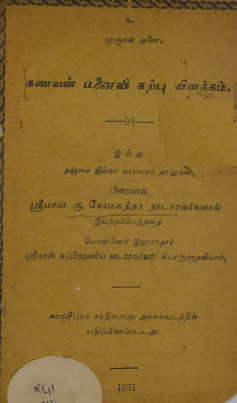 உ
முருகன் துணை.
கணவன் மனைவி கற்பு விளக்கம்.
இஃது
தஞ்சை ஜில்லா மாயவரம் தாலுக்கா,
ஸ்ரீமான் கு. சோமசுந்தர நாடாரவர்களால்
இயற்றப்பெற்றதை
பொன்னேரி இஜாராதார்
ஸ்ரீமான் சுப்பிரமணிய நாடாரவர்கள் பொருளுதவியால்,
காஞ்சீபுரம் அச்சுக்கூடத்தில்
பதிப்பிக்கப்பட்டது.
1931
RL11